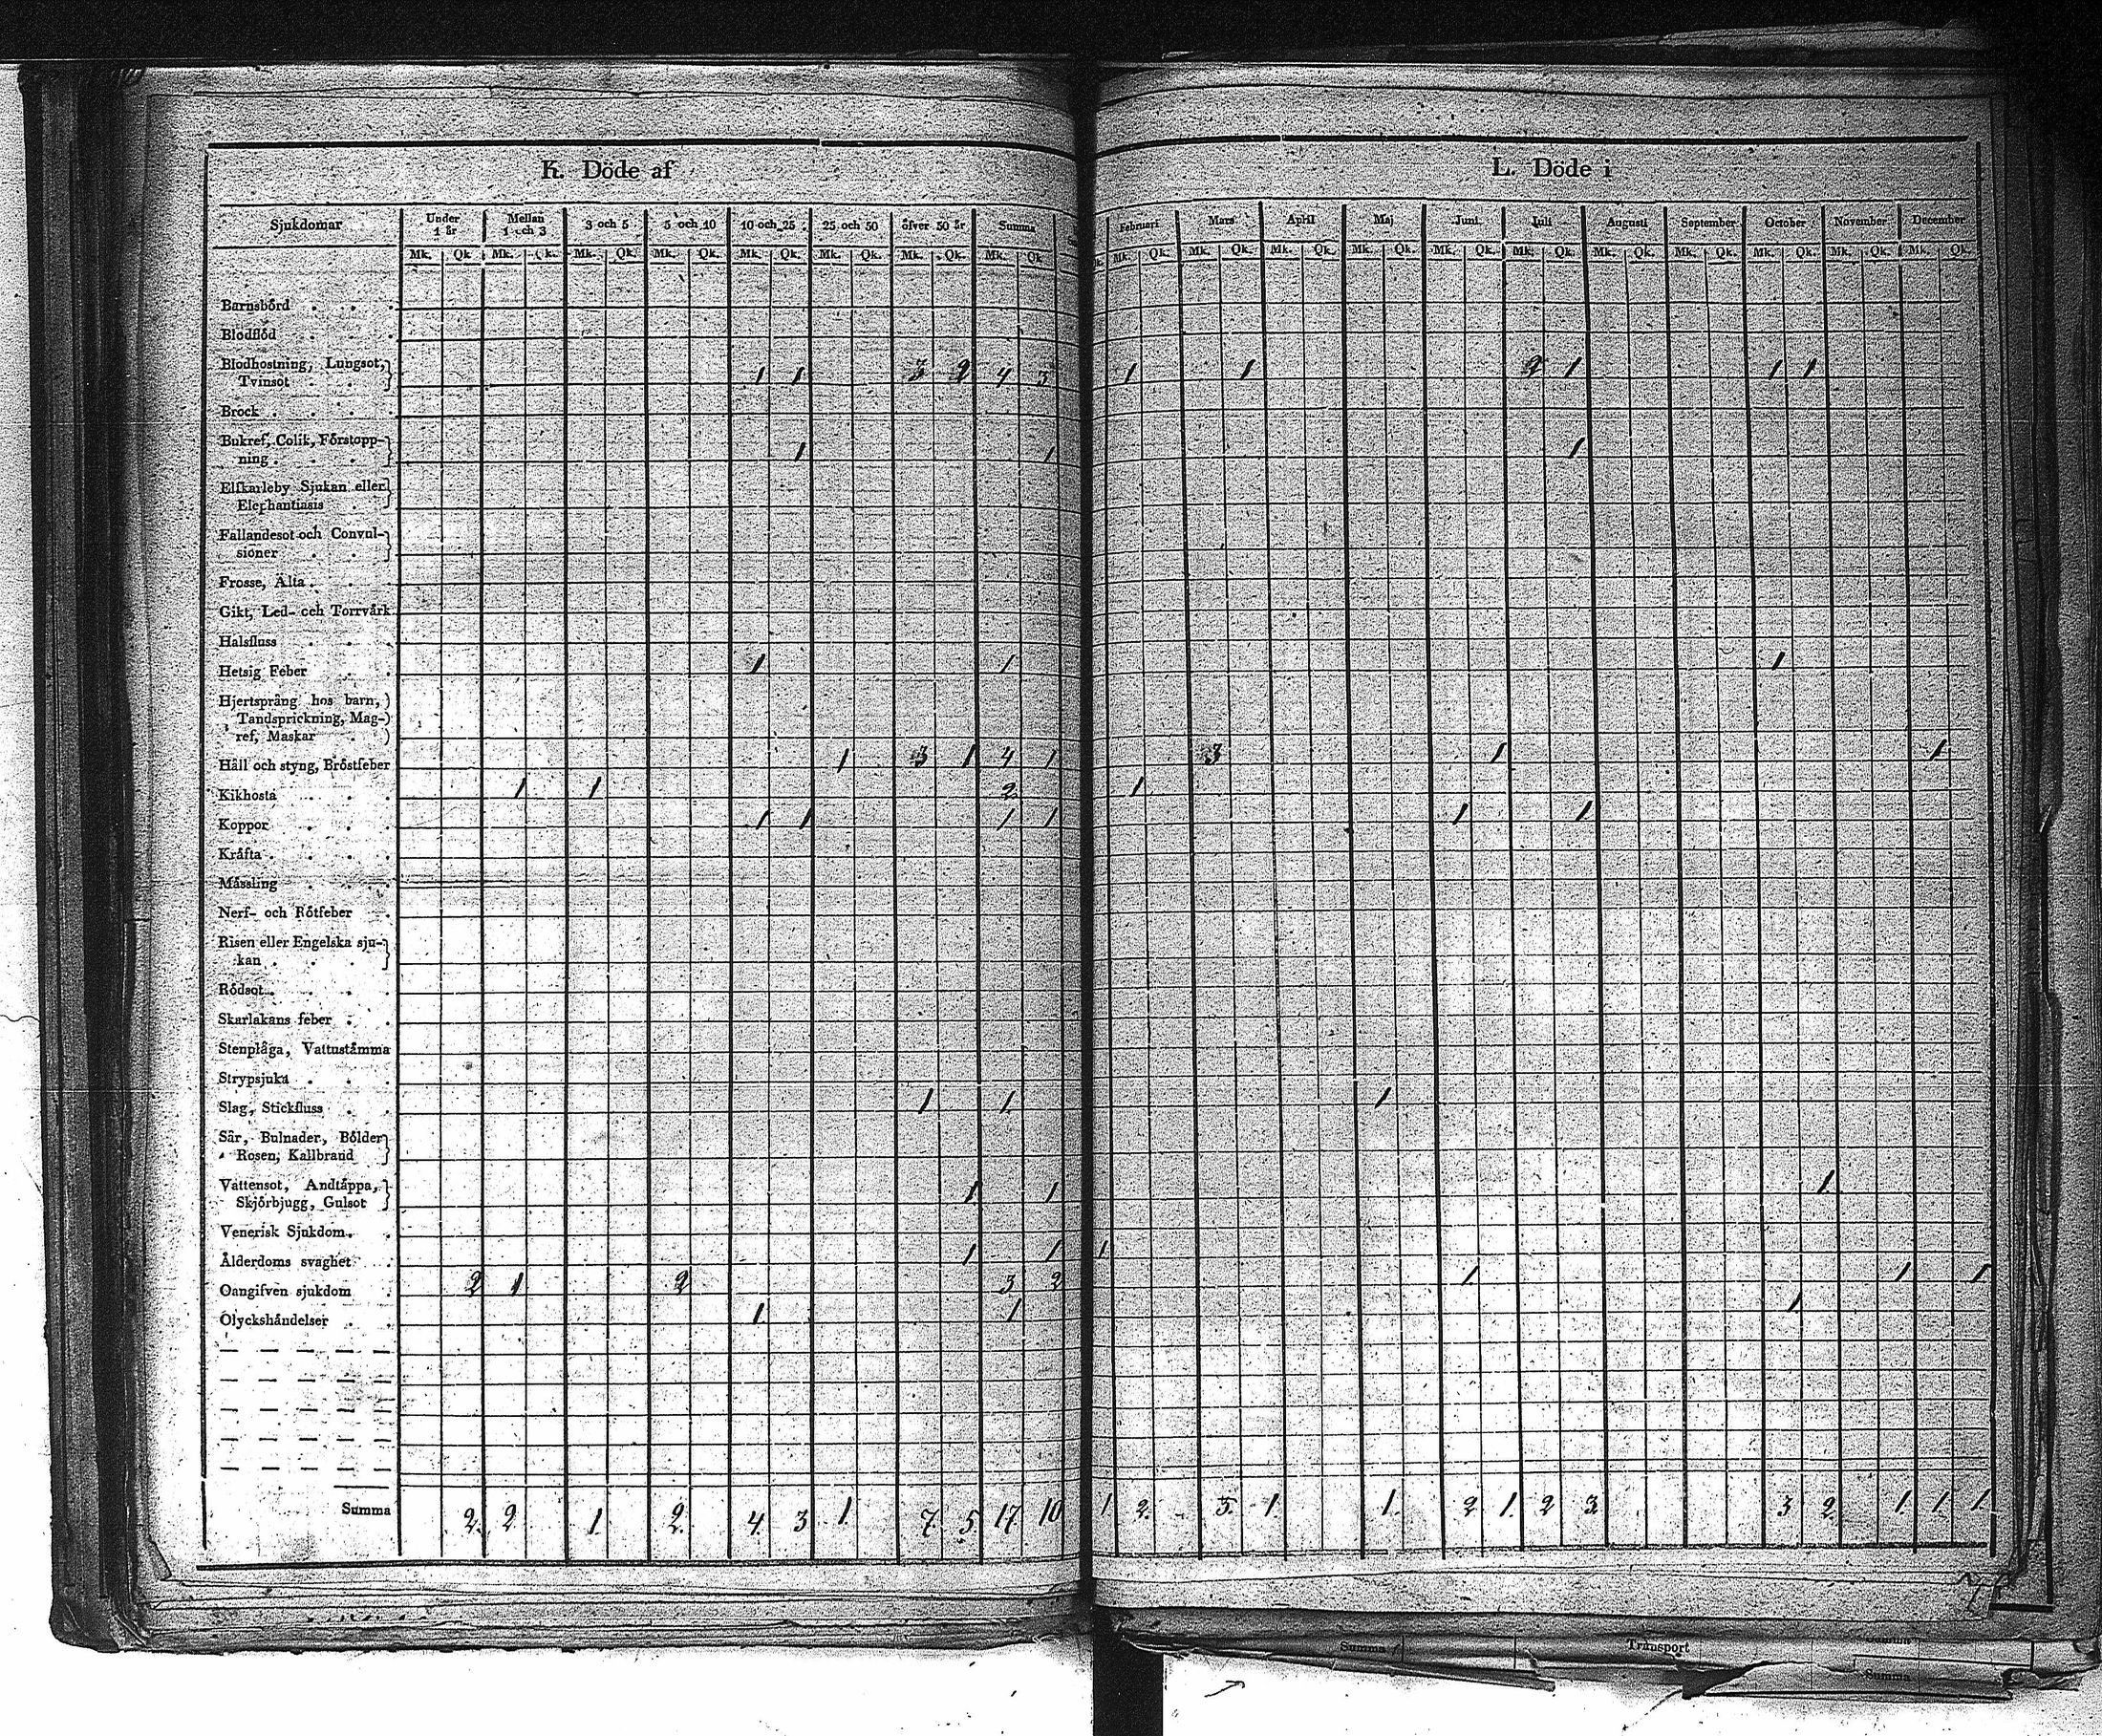 K. Döde af
L. Döde i
Sjukdomar Under 1 år Mellan 1 och 3 3 och 5 5 och 10 10 och 25 25 och 50 öfver 50 år Summa
Februari Mars April Maj Juni Juli Augusti September October November December
Mk. Qk. Mk. Qk. Mk. Qk. Mk. Qk. Mk. Qk. Mk. Qk. Mk. Qk. Mk. Qk.
Mk. Qk. Mk. Qk. Mk. Qk. Mk. Qk. Mk. Qk. Mk. Qk. Mk. Qk. Mk. Qk. Mk. Qk. Mk. Qk. Mk. Qk.
Barnsbörd
Blodflöd
Blodhostning, Lungsot,
Tvinsot 1 1 3 2 4 3 1 1 2 1 1 1
Brock
Bukref, Colik, Förstopp-
ning 1 1 1
Elfkarleby Sjukan eller
Elephantiasis
Fallandesot och Convul-
sioner
Frosse, Älta
Gikt, Led- och Torrvärk
Halsfluss
Hetsig Feber 1 1 1
Hjertsprång hos barn,
Tandsprickning, Mag-
ref, Maskar
Håll och styng, Bröstfeber 1 3 1 4 1 3 1 1
Kikhosta 1 1 2 1
Koppor 1 1 1 1 1 1
Kräfta
Mässling
Nerf- och Rötfeber
Risen eller Engelska sju-
kan
Rödsot
Skarlakans feber
Stenplåga, Vattustämma
Strypsjuka
Slag, Stickfluss 1 1 1
Sår, Bulnader, Bölder
Rosen, Kallbrand
Vattensot, Andtäppa,
Skjörbjugg, Gulsot 1 1 1
Venerisk Sjukdom
Ålderdoms svaghet 1 1 1
Oangifven sjukdom 2 1 2 3 2 1 1 1
Olyckshändelser 1 1 1
Summa 2. 2. 1. 2. 4. 3 1. 7. 5 17 10 1. 2. 3. 1. 1. 2 1. 2 3. 3 2. 1. 1. 1
Summa Transport
Summa